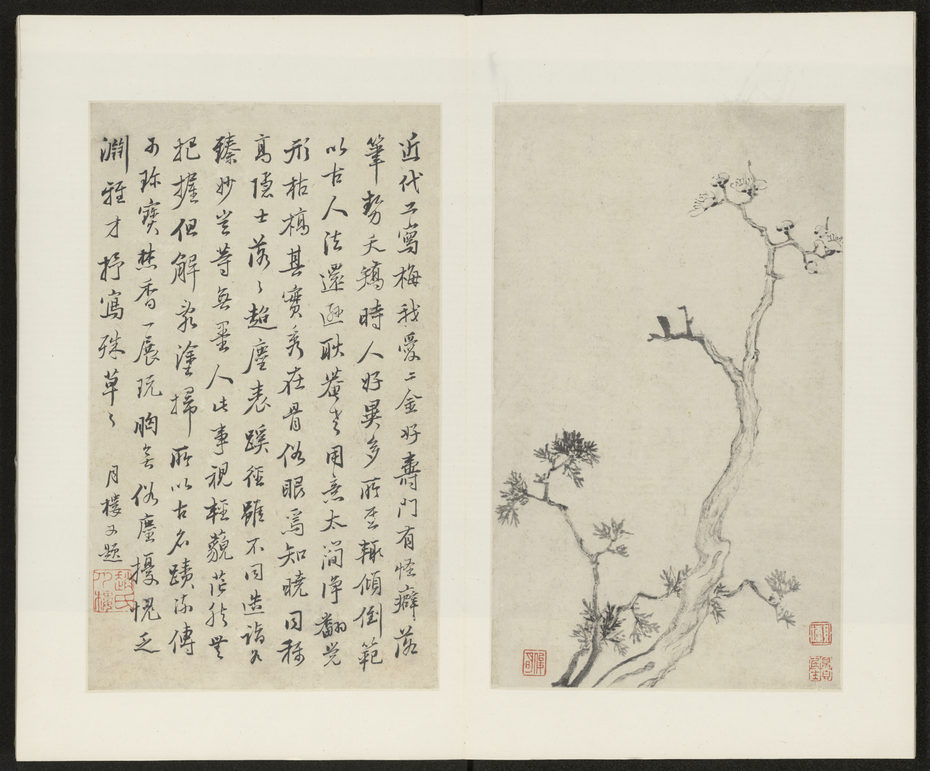 近代工寫梅我愛二金好壽門有怪癖落
筆勢夭矯時人好異多所至輒傾倒範
以古人法還遜耿菴老用意太簡淨翻覺
形枯槁其實秀在骨俗眼焉知曉同稱
高隱士落〻超塵表蹊徑雖不同造詣久
臻妙豈等無墨人此事視輕藐茫然無
把握但解亂塗掃所以古名蹟流傳
可珍寶焚香一展玩胸無俗塵擾愧乏
淵雅才抒寫殊草〻　月樓又題